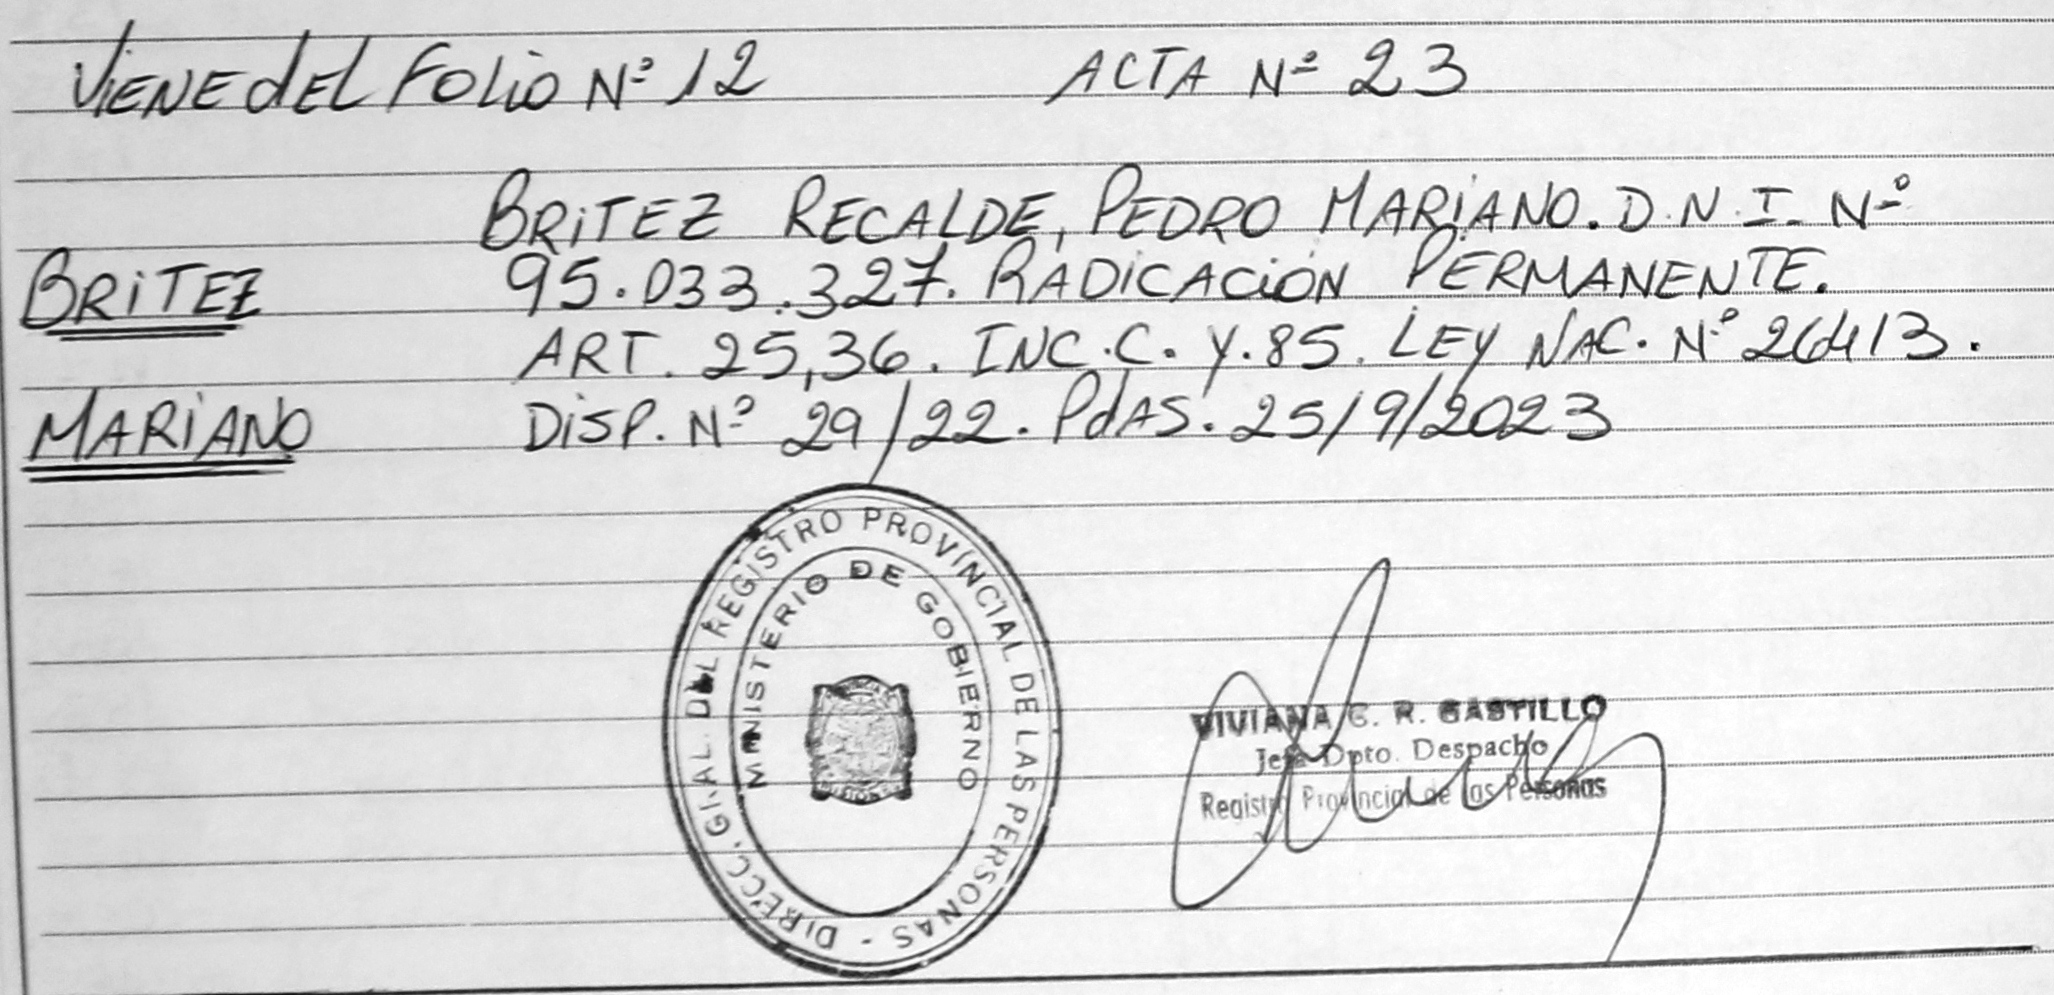 Viene del Folio Nº 12 ACTA Nº 23
BRITEZ RECALDE, PEDRO MARIANO. D.N.I. Nº
BRITEZ 95.033.327. RADICACIÓN PERMANENTE.
ART. 25,36. INC.C. Y.85. LEY NAC. Nº 26413.
MARIANO DISP. Nº 29/22. PdAS. 25/9/2023
DIRECC. GRAL. DEL REGISTRO PROVINCIAL DE LAS PERSONAS -
MINISTERIO DE GOBIERNO
VIVIANA C. R. CASTILLO
Jefa Dpto. Despacho
Registro Provincial de las Personas